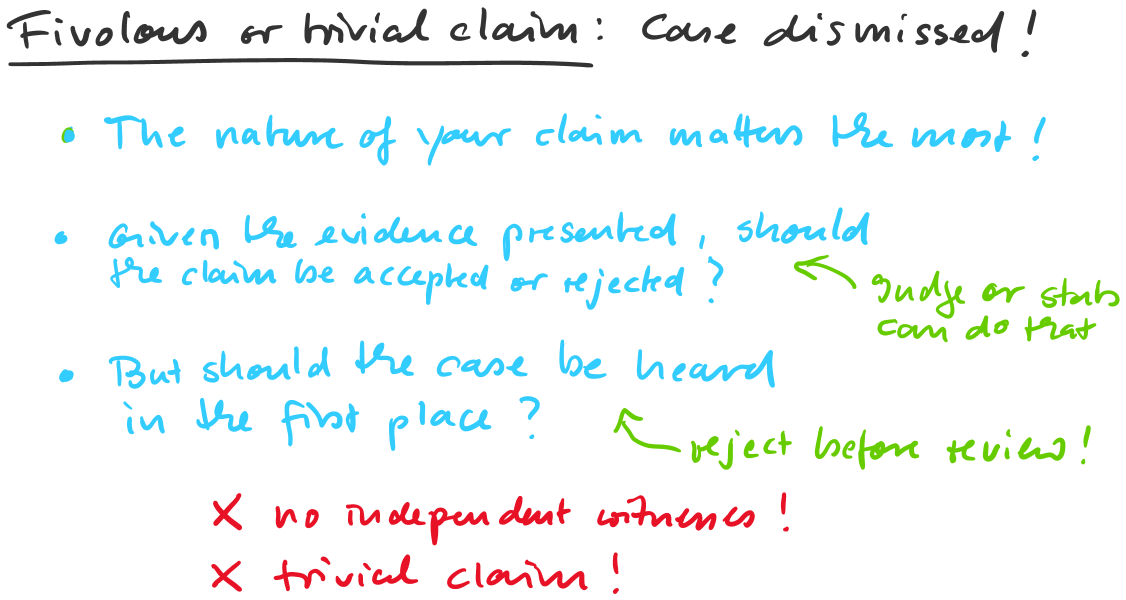 Fivolous or trivial claim: Case dismissed!
• The nature of your claim matters the most!
• Given the evidence presented, should
the claim be accepted or rejected?
Judge or stats
can do that
• But should the case be heard
in the first place?
reject before review!
X no independent witnesses!
X trivial claim!